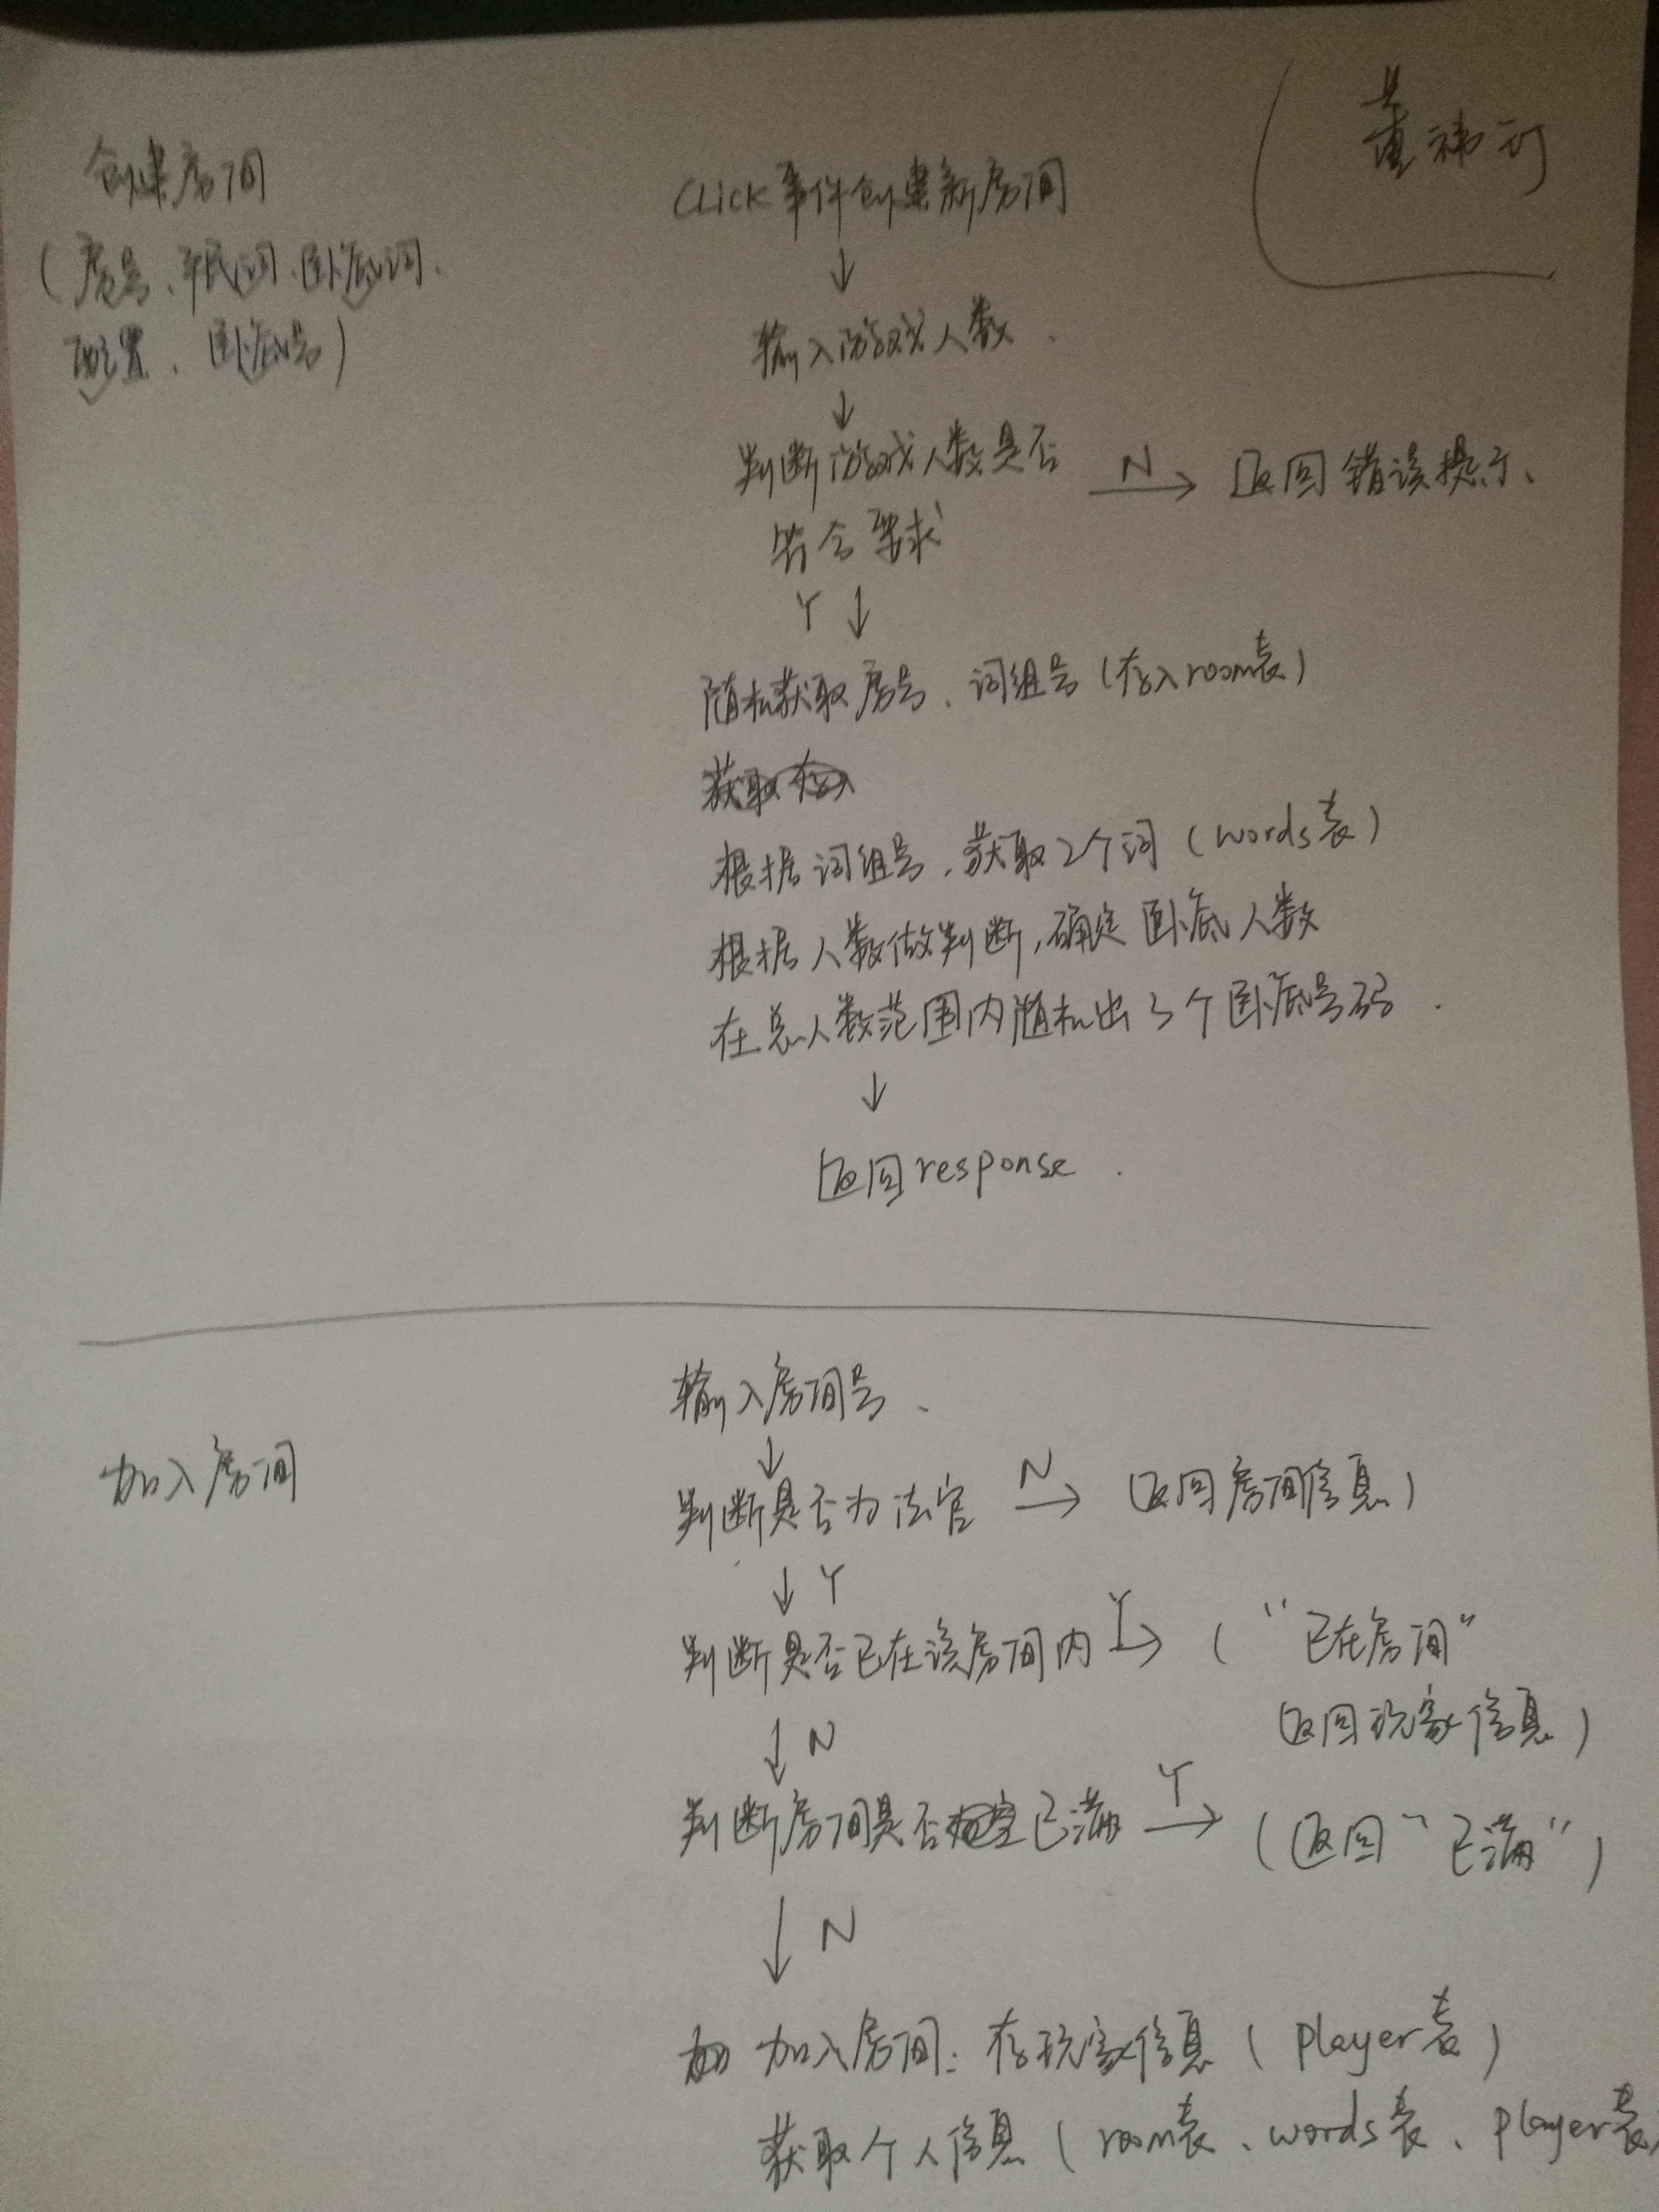 创建房间
(房号、平民词、卧底词、
配置、卧底号)
Click事件创建新房间
↓
输入游戏人数.
↓
判断游戏人数是否
符合要求
N → 返回错误提示、
Y ↓
随机获取房号、词组号(存入room表)
根据词组号,获取2个词(words表)
根据人数做判断,确定卧底人数
在总人数范围内随机出3个卧底号码.
↓
返回response.
加入房间
输入房间号、
↓
判断是否为法官 N → (返回房间信息)
↓ Y
判断是否已在该房间内 Y → ("已在房间"
返回玩家信息)
↓ N
判断房间是否已满 Y → (返回"已满")
↓ N
加入房间:存玩家信息(player表)
获取个人信息(room表、words表、player表)